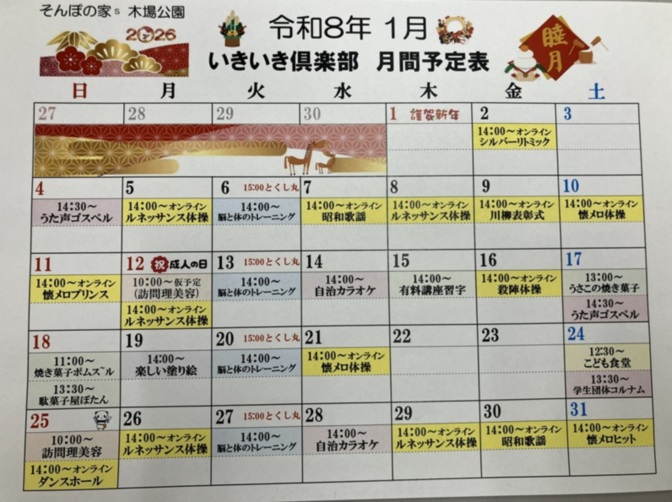 そんぽの家s 木場公園
2026
令和8年 1月
いきいき倶楽部 月間予定表
睦月
日 月 火 水 木 金 土
27 28 29 30 1 謹賀新年 2 3
14:00〜オンライン
シルバーリトミック
4 5 6 15:00とくし丸 7 8 9 10
14:30〜 14:00〜オンライン 14:00〜 14:00〜オンライン 14:00〜オンライン 14:00〜オンライン 14:00〜オンライン
うた声ゴスペル ルネッサンス体操 脳と体のトレーニング 昭和歌謡 ルネッサンス体操 川柳表彰式 懐メロ体操
11 12 祝 成人の日 13 15:00とくし丸 14 15 16 17
14:00〜オンライン 10:00〜仮予定 14:00〜 14:00〜 14:00〜 14:00〜オンライン 13:00〜
懐メロプリンス (訪問理美容) 脳と体のトレーニング 自治カラオケ 有料講座習字 殺陣体操 うさこの焼き菓子
14:00〜オンライン 14:30〜
ルネッサンス体操 うた声ゴスペル
18 19 20 15:00とくし丸 21 22 23 24
11:00〜 14:00〜 14:00〜 14:00〜オンライン 12:30〜
焼き菓子ポムズール 楽しい塗り絵 脳と体のトレーニング 懐メロ体操 こども食堂
13:30〜 13:30〜
駄菓子屋ぼたん 学生団体コルナム
25 26 27 15:00とくし丸 28 29 30 31
10:00〜 14:00〜オンライン 14:00〜 14:00〜 14:00〜オンライン 14:00〜オンライン 14:00〜オンライン
訪問理美容 ルネッサンス体操 脳と体のトレーニング 自治カラオケ ルネッサンス体操 昭和歌謡 懐メロヒット
14:00〜オンライン
ダンスホール